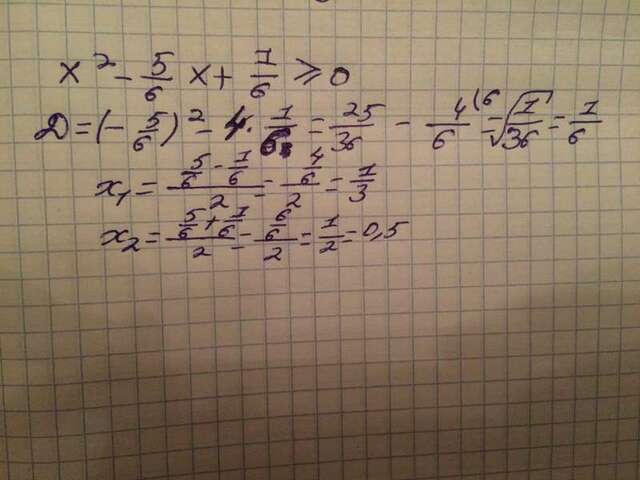 x² - 5/6 x + 1/6 ≥ 0
D = (-5/6)² - 4·1/6 = 25/36 - 4(6/6 = √1/36 = 1/6
x₁ = (5/6 - 1/6)/2 = (4/6)/2 = 1/3
x₂ = (5/6 + 1/6)/2 = (6/6)/2 = 1/2 = 0,5